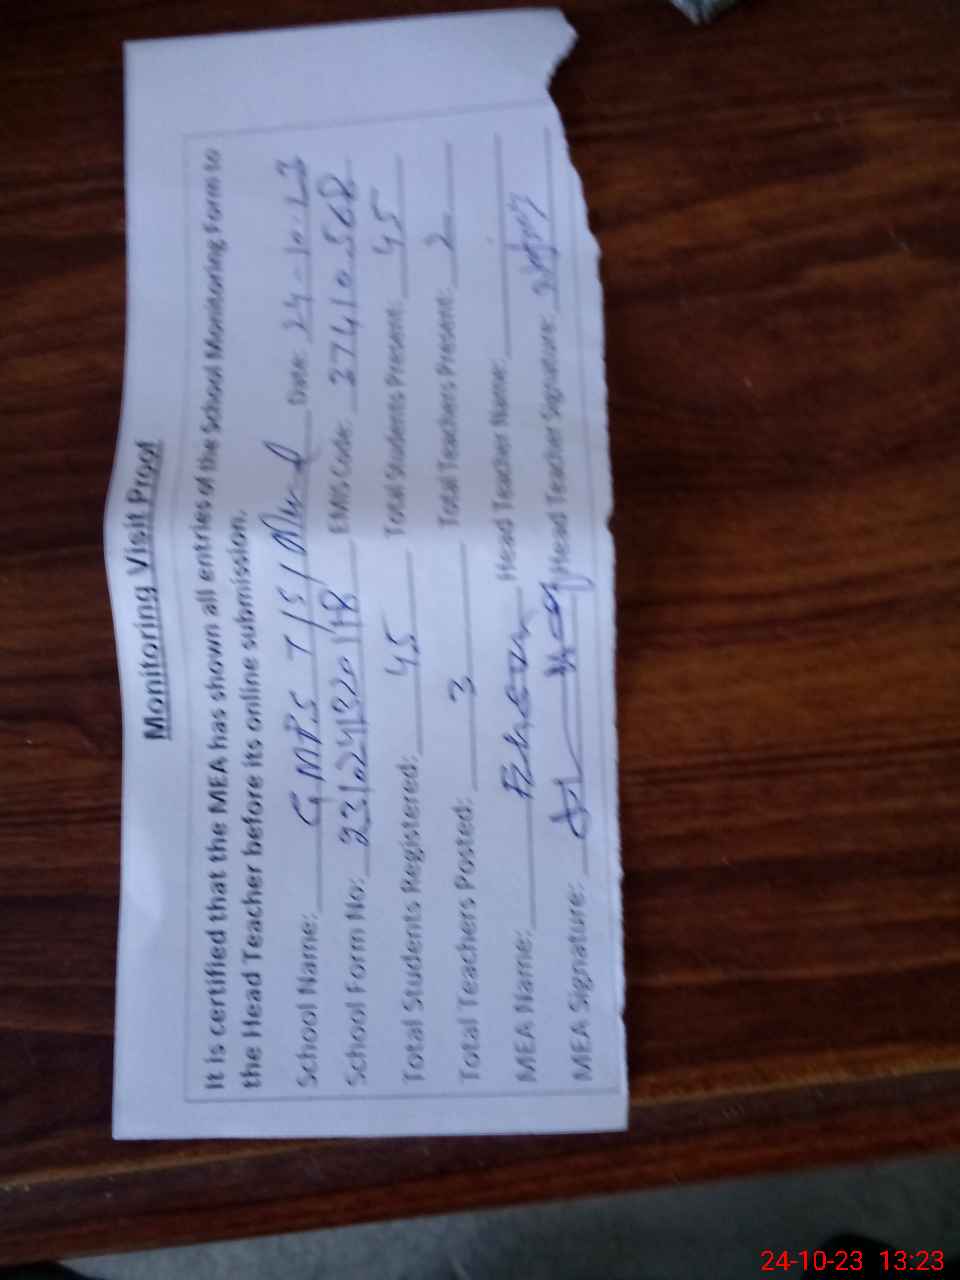 Monitoring Visit Proof
It is certified that the MEA has shown all entries of the School Monitoring Form to
the Head Teacher before its online submission.
School Name: GMPS Date: 24-10-23
School Form No: EMIS Code: 37410568
Total Students Registered: 45 Total Students Present: 45
Total Teachers Posted: 3 Total Teachers Present: 2
MEA Name: Head Teacher Name:
MEA Signature: Head Teacher Signature:
24-10-23 13:23